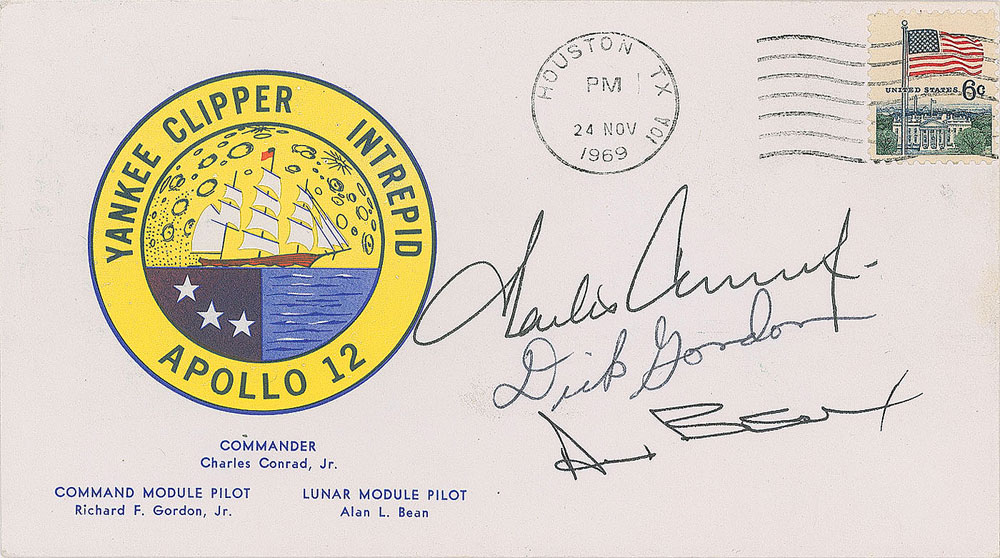 YANKEE CLIPPER INTREPID
APOLLO 12
COMMANDER
Charles Conrad, Jr.
COMMAND MODULE PILOT
Richard F. Gordon, Jr.
LUNAR MODULE PILOT
Alan L. Bean
HOUSTON TX 101
PM
24 NOV
1969
UNITED STATES 6c
Charles Conrad Jr.
Dick Gordon
Alan Bean